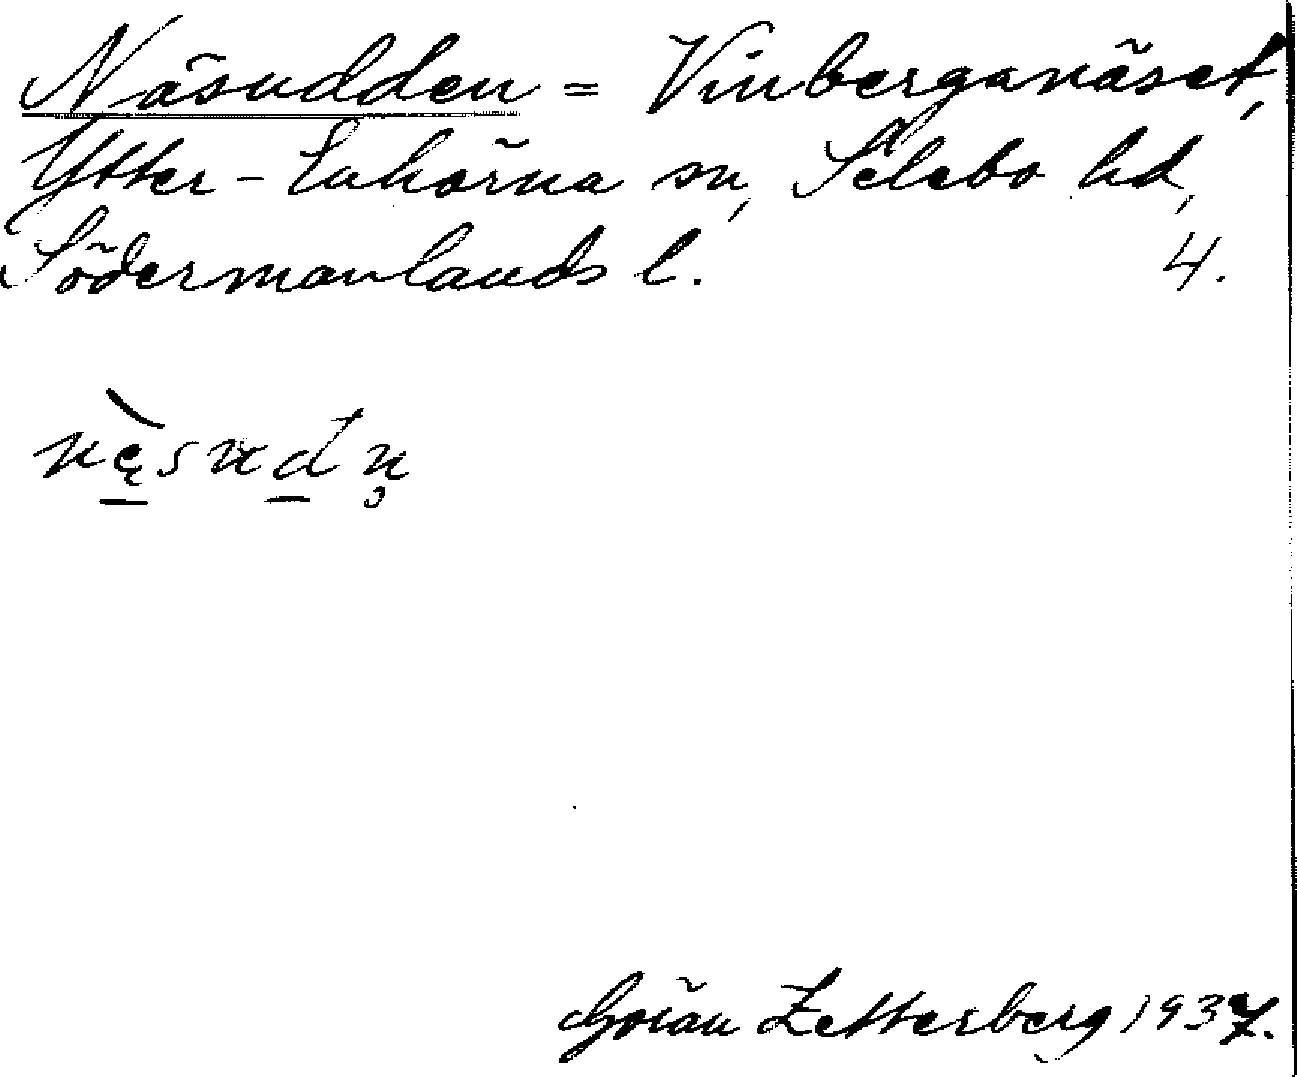 Näsudden = Vinberganäset,
Ytter-Enhörna sn, Selebo hd,
Södermanlands l. 4.
nę̀sudn̥
Göran Zetterberg 1937.